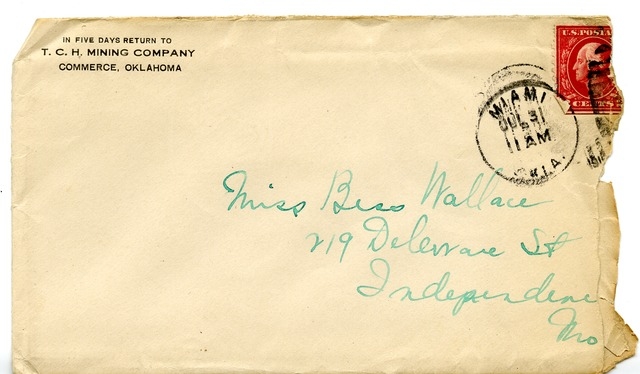 IN FIVE DAYS RETURN TO
T. C. H. MINING COMPANY
COMMERCE, OKLAHOMA
U.S. POSTA
CENTS
MIAMI
JUL 31
11 AM
OKLA.
Miss Bess Wallace
219 Deleware St
Independene
Mo